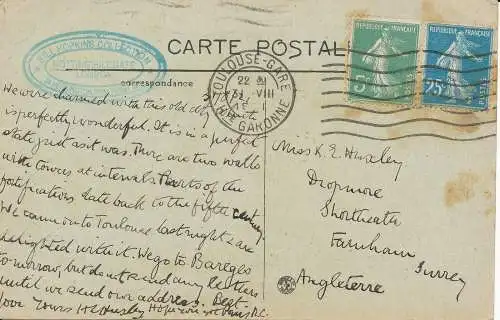 BILL HORNING COLLECTION
CARTE POSTALE
correspondance
TOULOUSE-GARE
22
31 VIII
Hte GARONNE
REPUBLIQUE FRANÇAISE
5c
REPUBLIQUE FRANÇAISE
25c
We were charmed with this old city which
is perfectly wonderful. It is in a perfect
state just as it was. There are two walls
with towers at intervals Parts of the
fortifications date back to the fifth century.
We came on to Toulouse last night & are
delighted with it. We go to Bareges
to-morrow, but do not send any letters
until we send our address. Best
love Yours
Miss K. E. Huxley
Dropmore
Shortheath
Farnham
Surrey
Angleterre